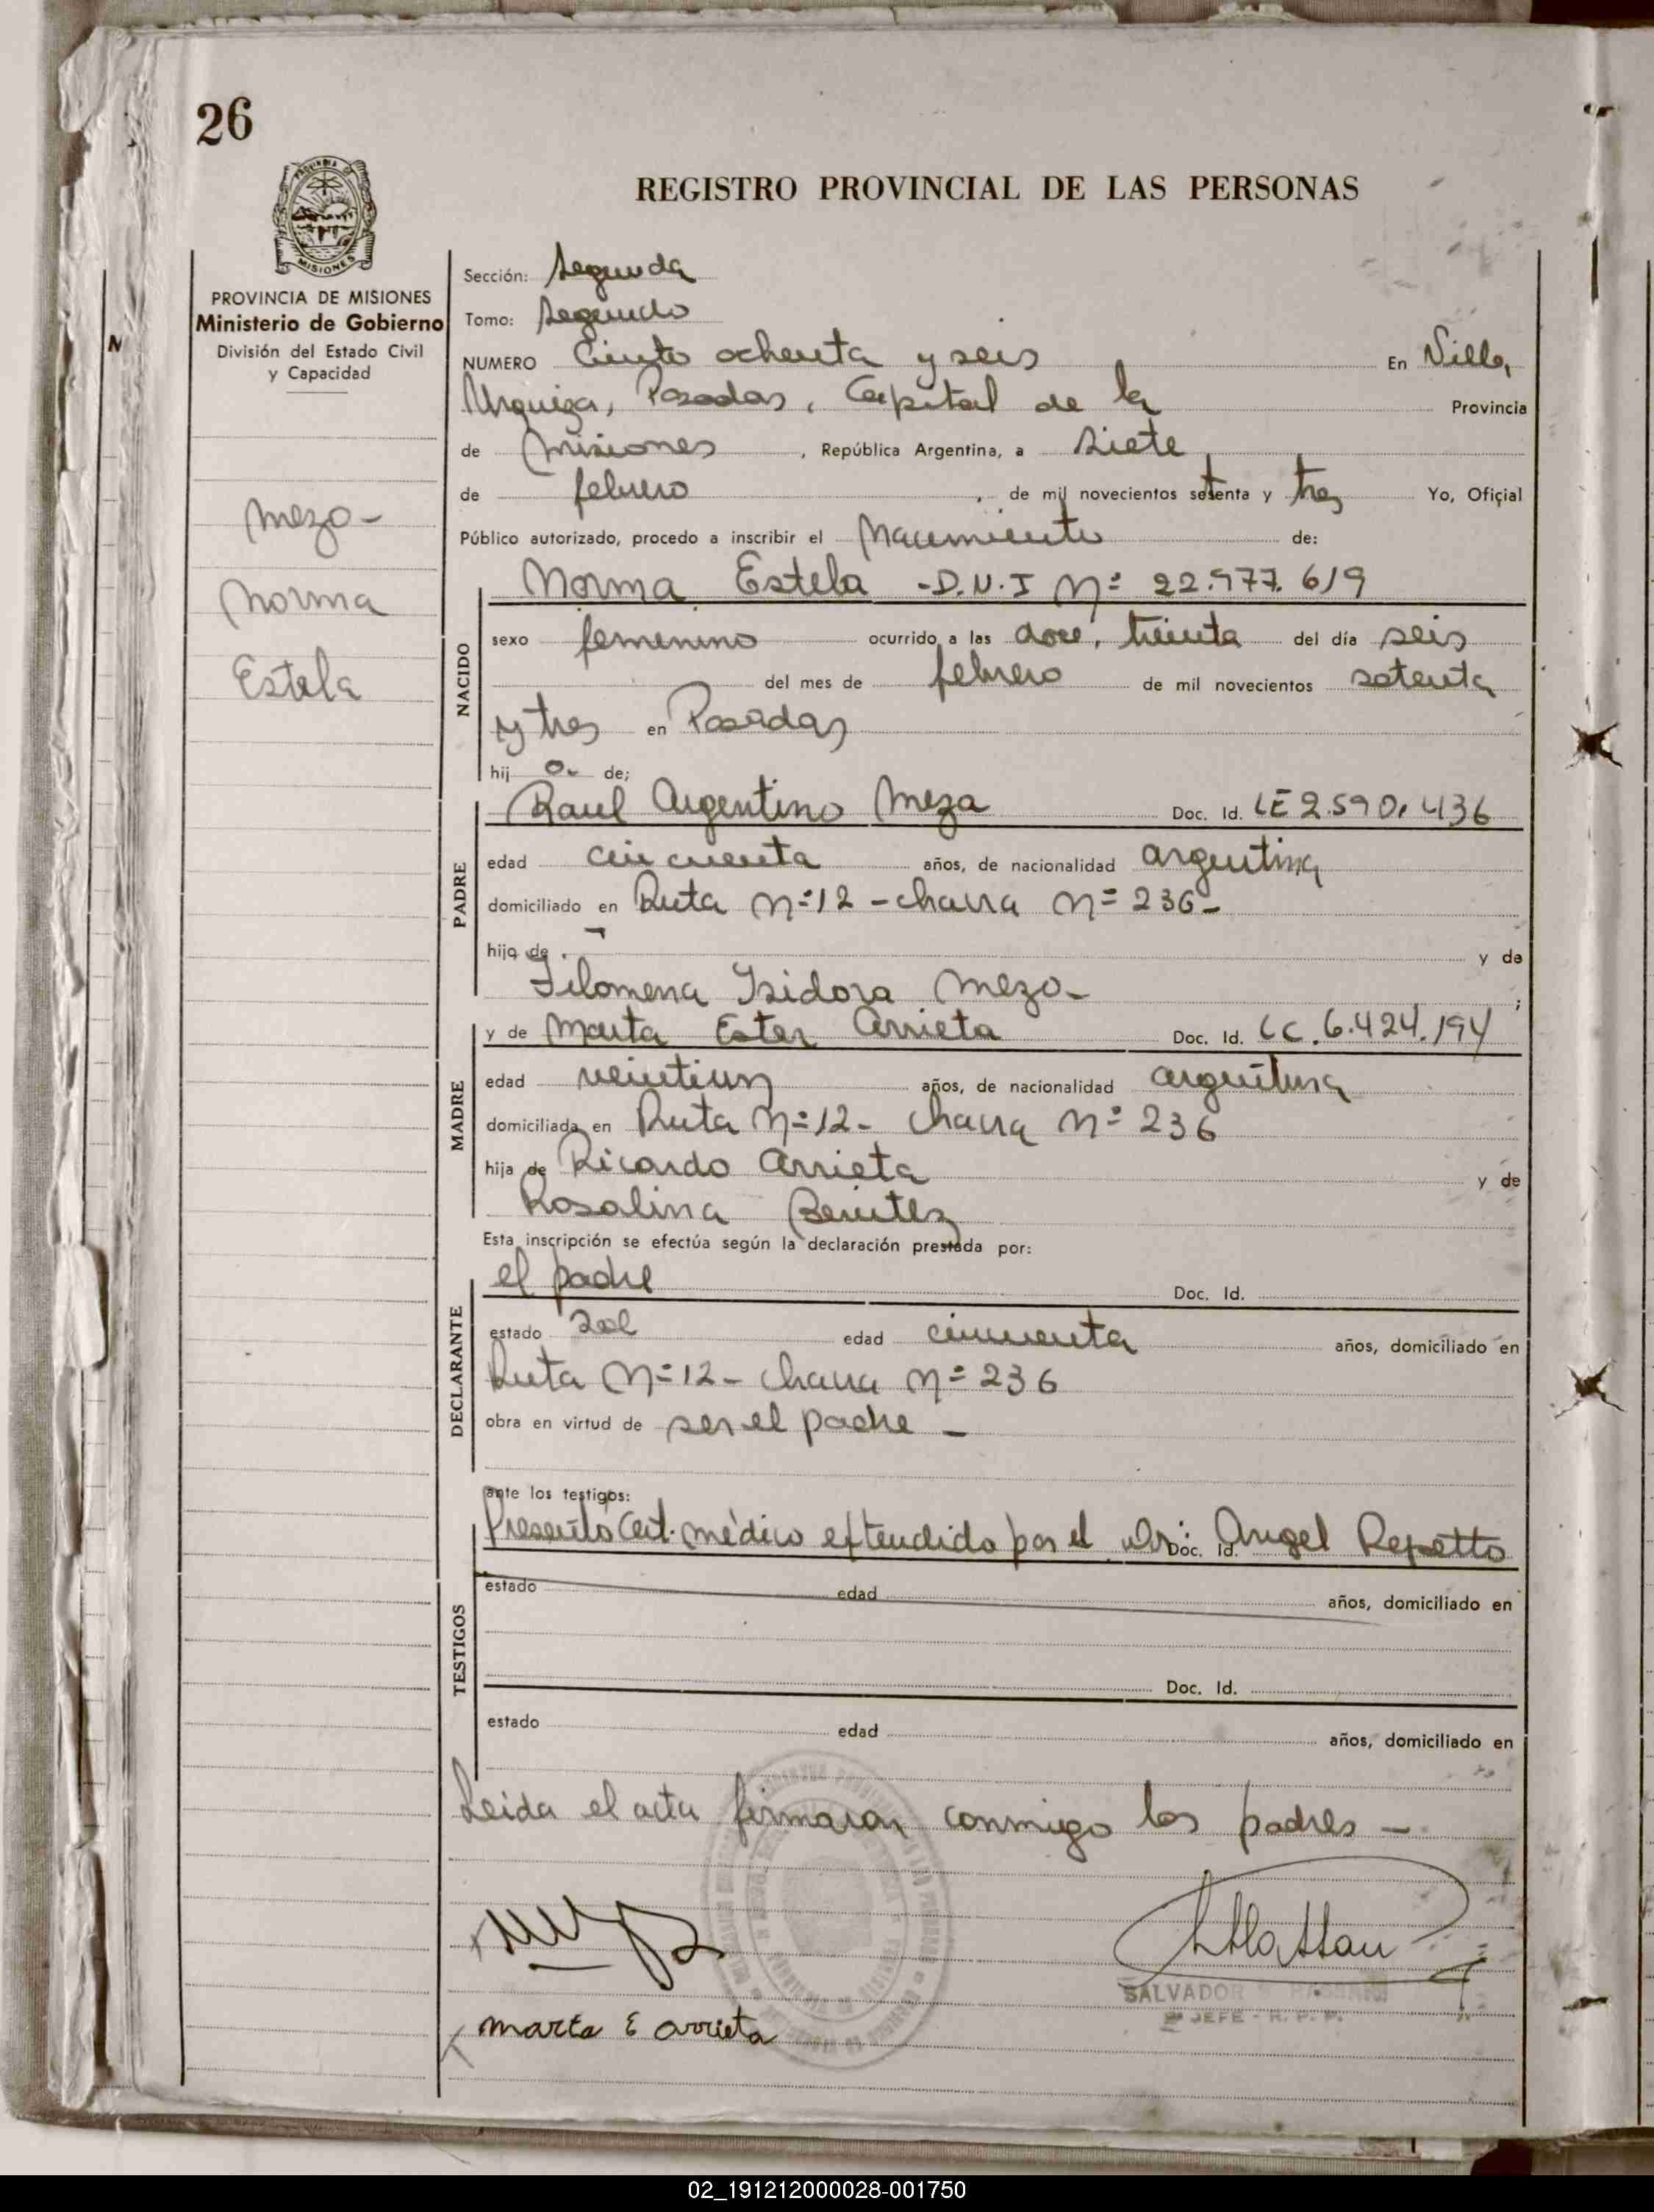 26
REGISTRO PROVINCIAL DE LAS PERSONAS
PROVINCIA DE
MISIONES
PROVINCIA DE MISIONES
Ministerio de Gobierno
División del Estado Civil
y Capacidad
Meza-
Norma
Estela
Sección: Segunda
Tomo: Segundo
NUMERO Ciento ochenta y seis En Villa
Urquiza, Posadas, Capital de la Provincia
de Misiones, República Argentina, a siete
de febrero, de mil novecientos setenta y tres Yo, Oficial
Público autorizado, procedo a inscribir el Nacimiento de:
Norma Estela -D.N.I Nº 22.977.619
NACIDO
sexo femenino ocurrido a las doce, treinta del día seis
del mes de febrero de mil novecientos setenta
y tres en Posadas
hij a- de;
PADRE
Raul Argentino Meza Doc. Id. LE 2.590.436
edad cincuenta años, de nacionalidad argentina
domiciliado en Ruta Nº 12 - chacra Nº 236-
hijo de - y de
Filomena Isidora Meza- ;
MADRE
y de Marta Ester Arrieta Doc. Id. LC. 6.424.194
edad veintiun años, de nacionalidad argentina
domiciliada en Ruta Nº 12- chacra Nº 236
hija de Ricardo Arrieta y de
Rosalina Benitez
Esta inscripción se efectúa según la declaración prestada por:
DECLARANTE
el padre Doc. Id.
estado edad cincuenta años, domiciliado en
Ruta Nº 12- chacra Nº 236
obra en virtud de ser el padre -
ante los testigos:
TESTIGOS
Presentó Cert. médico extendido por el Dr: Angel Repetto Doc. Id.
estado edad años, domiciliado en
Doc. Id.
estado edad años, domiciliado en
Leida el acta firmaran conmigo los padres -
SALVADOR
JEFE - R. P. P.
Marta E Arrieta
02_191212000028-001750